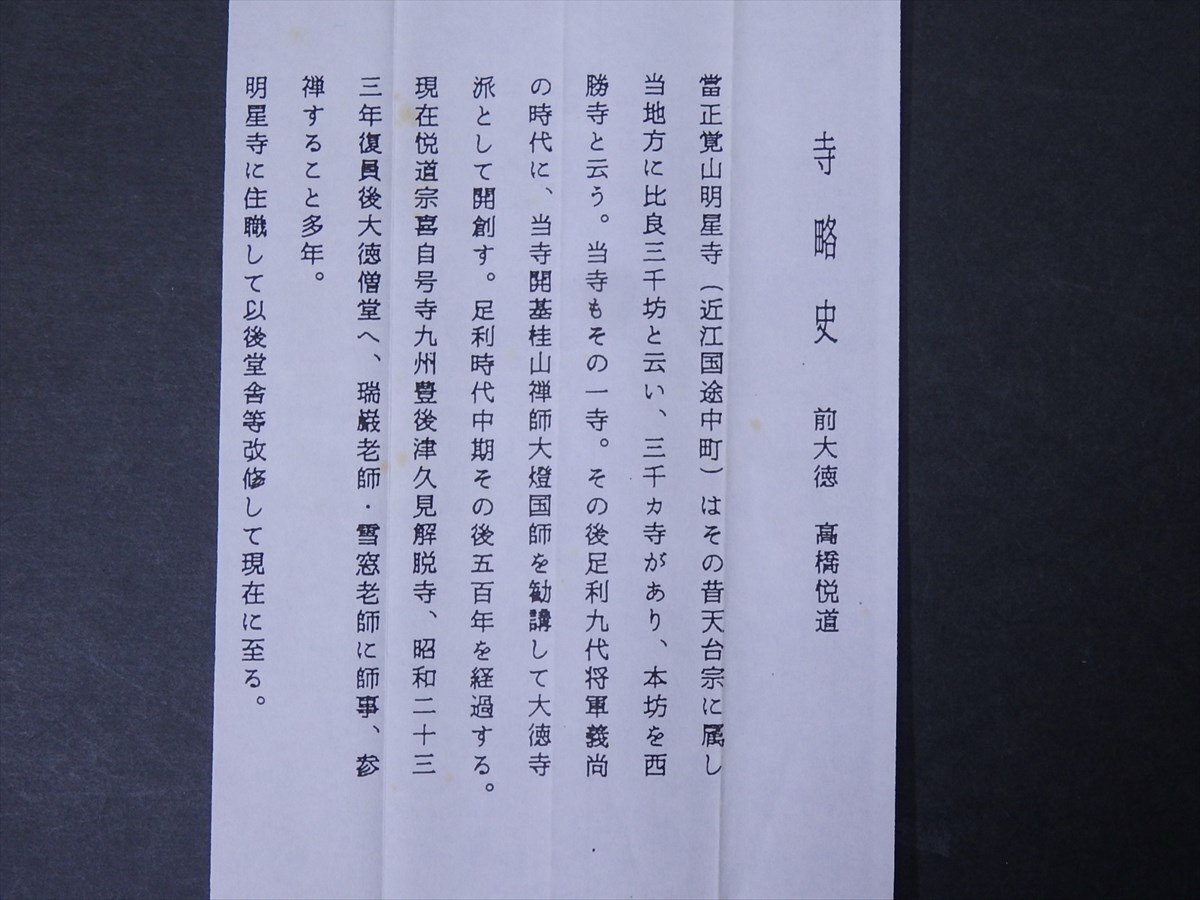 寺略史　前大徳　高橋悦道
當正覚山明星寺（近江国途中町）はその昔天台宗に属し
当地方に比良三千坊と云い、三千カ寺があり、本坊を西
勝寺と云う。当寺もその一寺。その後足利九代将軍義尚
の時代に、当寺開基桂山禅師大燈国師を勧講して大徳寺
派として開創す。足利時代中期その後五百年を経過する。
現在悦道宗喜自号寺九州豊後津久見解脱寺、昭和二十三
三年復員後大徳僧堂へ、瑞巌老師・雪窓老師に師事、参
禅すること多年。
明星寺に住職して以後堂舎等改修して現在に至る。